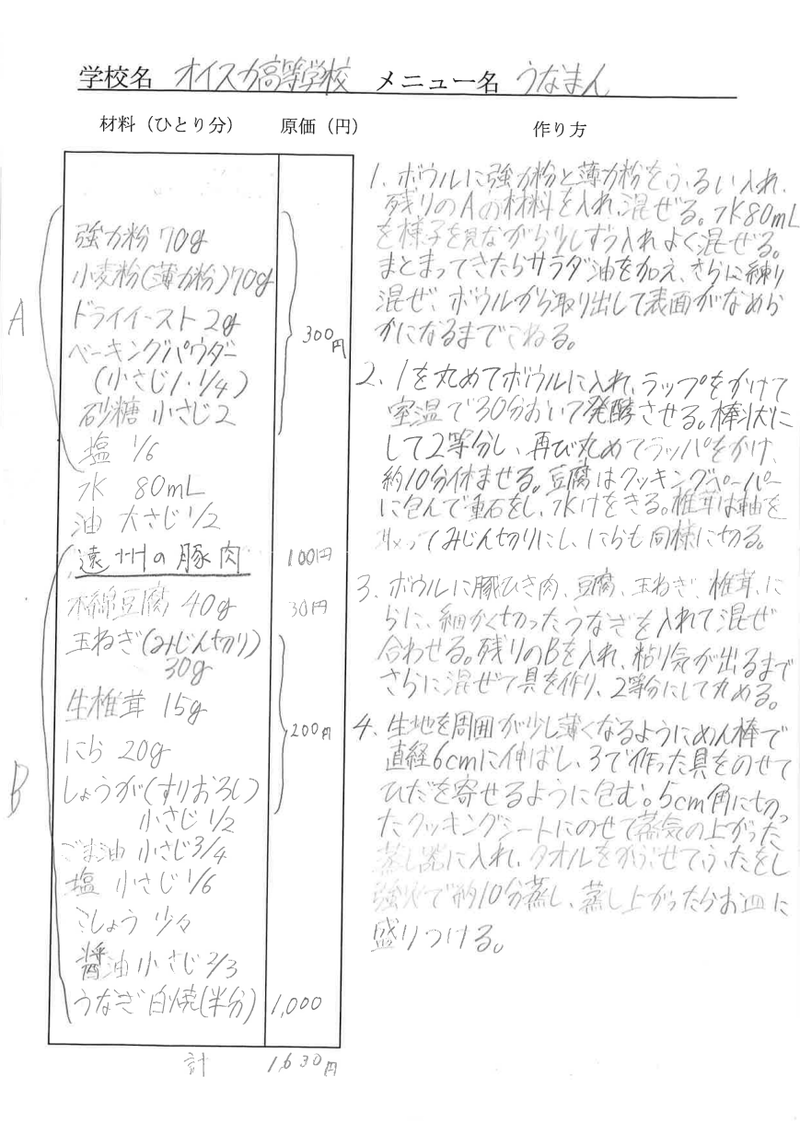 学校名 オイスカ高等学校 メニュー名 うなまん
材料（ひとり分） 原価（円） 作り方
A
強力粉 70g
小麦粉(薄力粉)70g
ドライイースト 2g
ベーキングパウダー
(小さじ1・1/4)
砂糖 小さじ2
塩 1/6
300円
水 80mL
油 大さじ1/2
B
遠州の豚肉 100円
木綿豆腐 40g 30円
玉ねぎ(みじん切り)
30g
生椎茸 15g
にら 20g
しょうが(すりおろし)
小さじ1/2
200円
ごま油 小さじ3/4
塩 小さじ1/6
こしょう 少々
醤油 小さじ2/3
うなぎ白焼(半分) 1,000
計 1,630円
1. ボウルに強力粉と薄力粉をふるい入れ、
残りのAの材料を入れ、混ぜる。水80mL
を様子を見ながら少しずつ入れよく混ぜる。
まとまってきたらサラダ油を加え、さらに練り
混ぜ、ボウルから取り出して表面がなめら
かになるまでこねる。
2. 1を丸めてボウルに入れ、ラップをかけて
室温で30分おいて発酵させる。棒状に
して2等分し、再び丸めてラップをかけ、
約10分休ませる。豆腐はクッキングペーパー
に包んで重石をし、水けをきる。椎茸は軸を
取ってみじん切りにし、にらも同様に切る。
3. ボウルに豚ひき肉、豆腐、玉ねぎ、椎茸、に
らに、細かく切ったうなぎを入れて混ぜ
合わせる。残りのBを入れ、粘り気が出るまで
さらに混ぜて具を作り、2等分にして丸める。
4. 生地を周囲が少し薄くなるようにめん棒で
直経6cmに伸ばし、3で作った具をのせて
ひだを寄せるように包む。5cm角に切っ
たクッキングシートにのせて蒸気の上がった
蒸し器に入れ、タオルをかぶせてふたをし
強火で約10分蒸し、蒸し上がったらお皿に
盛りつける。